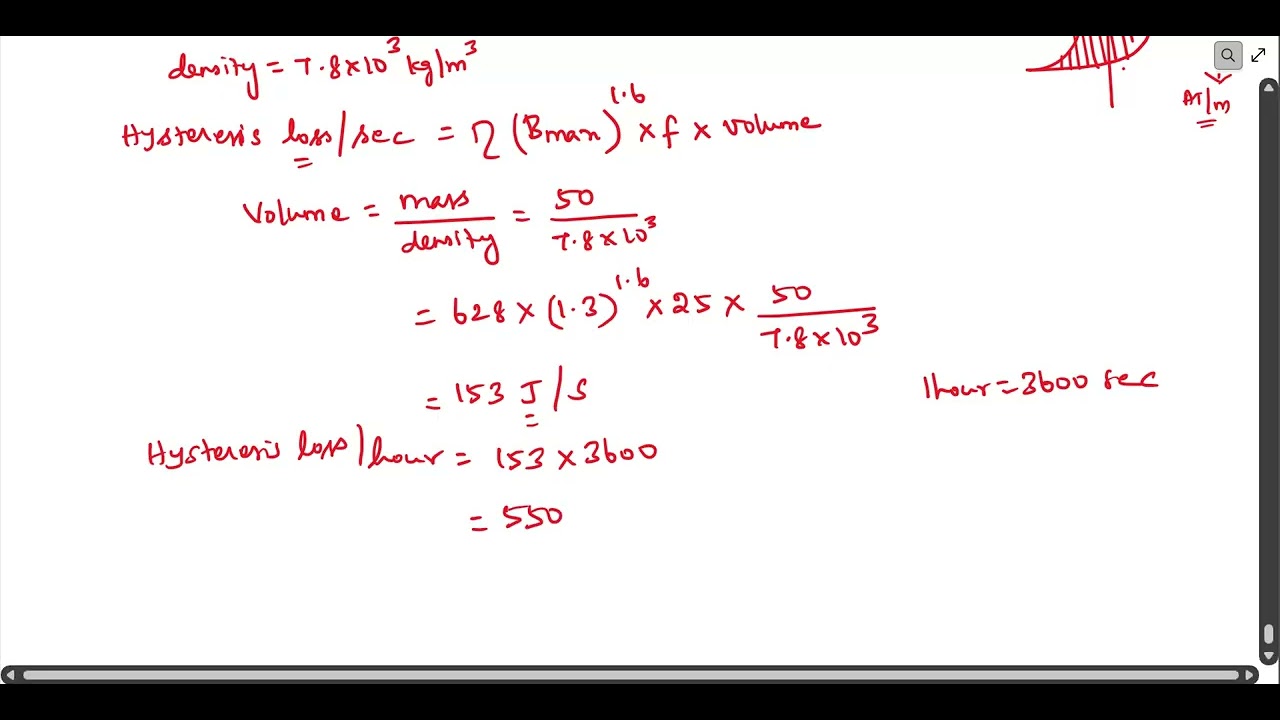 density = 7.8×10³ kg/m³
AT/m
Hysteresis loss/sec = η (Bmax)^1.6 × f × volume
Volume = mass/density = 50/7.8×10³
= 628 × (1.3)^1.6 × 25 × 50/7.8×10³
1hour = 3600 sec
= 153 J/S
Hysteresis loss/hour = 153 × 3600
= 550